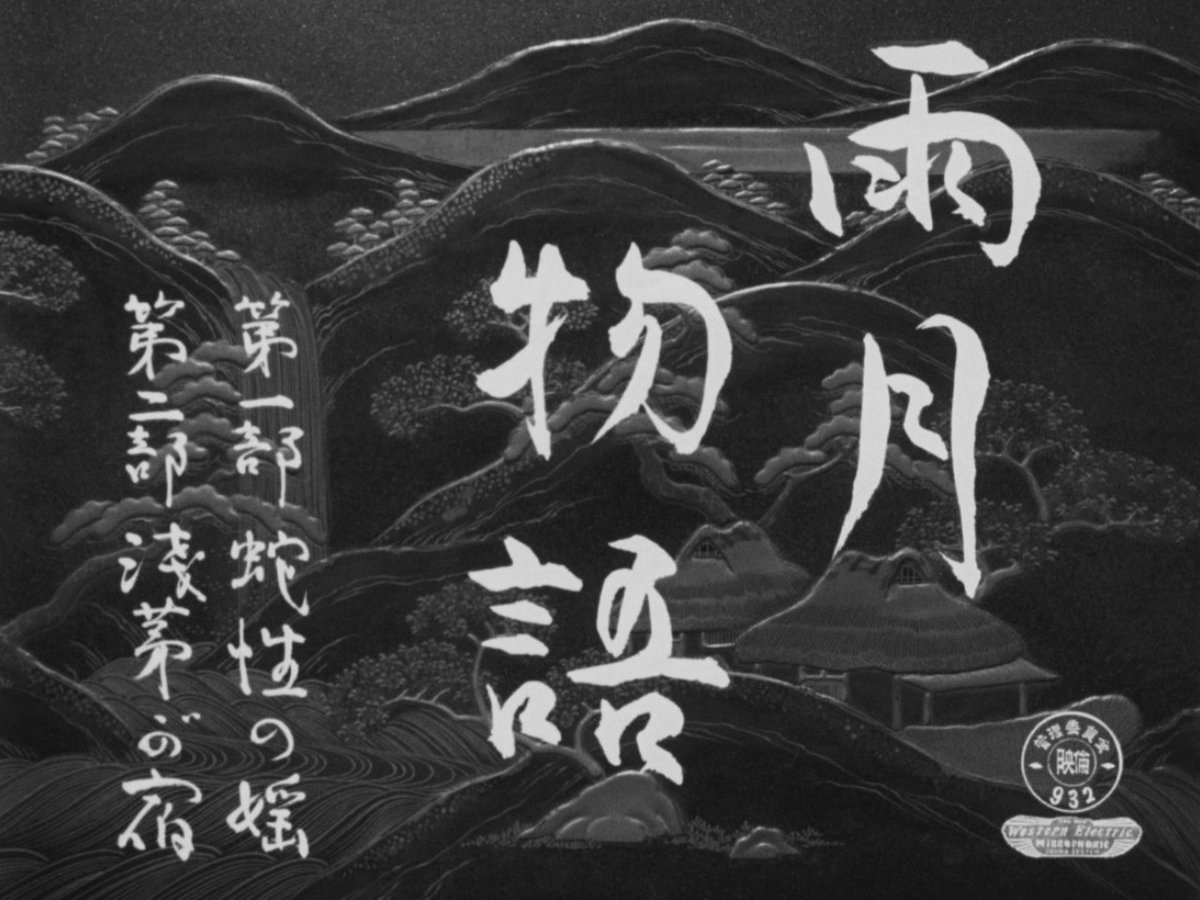 雨月
物語
第一部 蛇性の婬
第二部 浅茅が宿
管理委員会
映倫
932
Western Electric
MIRROPHONIC